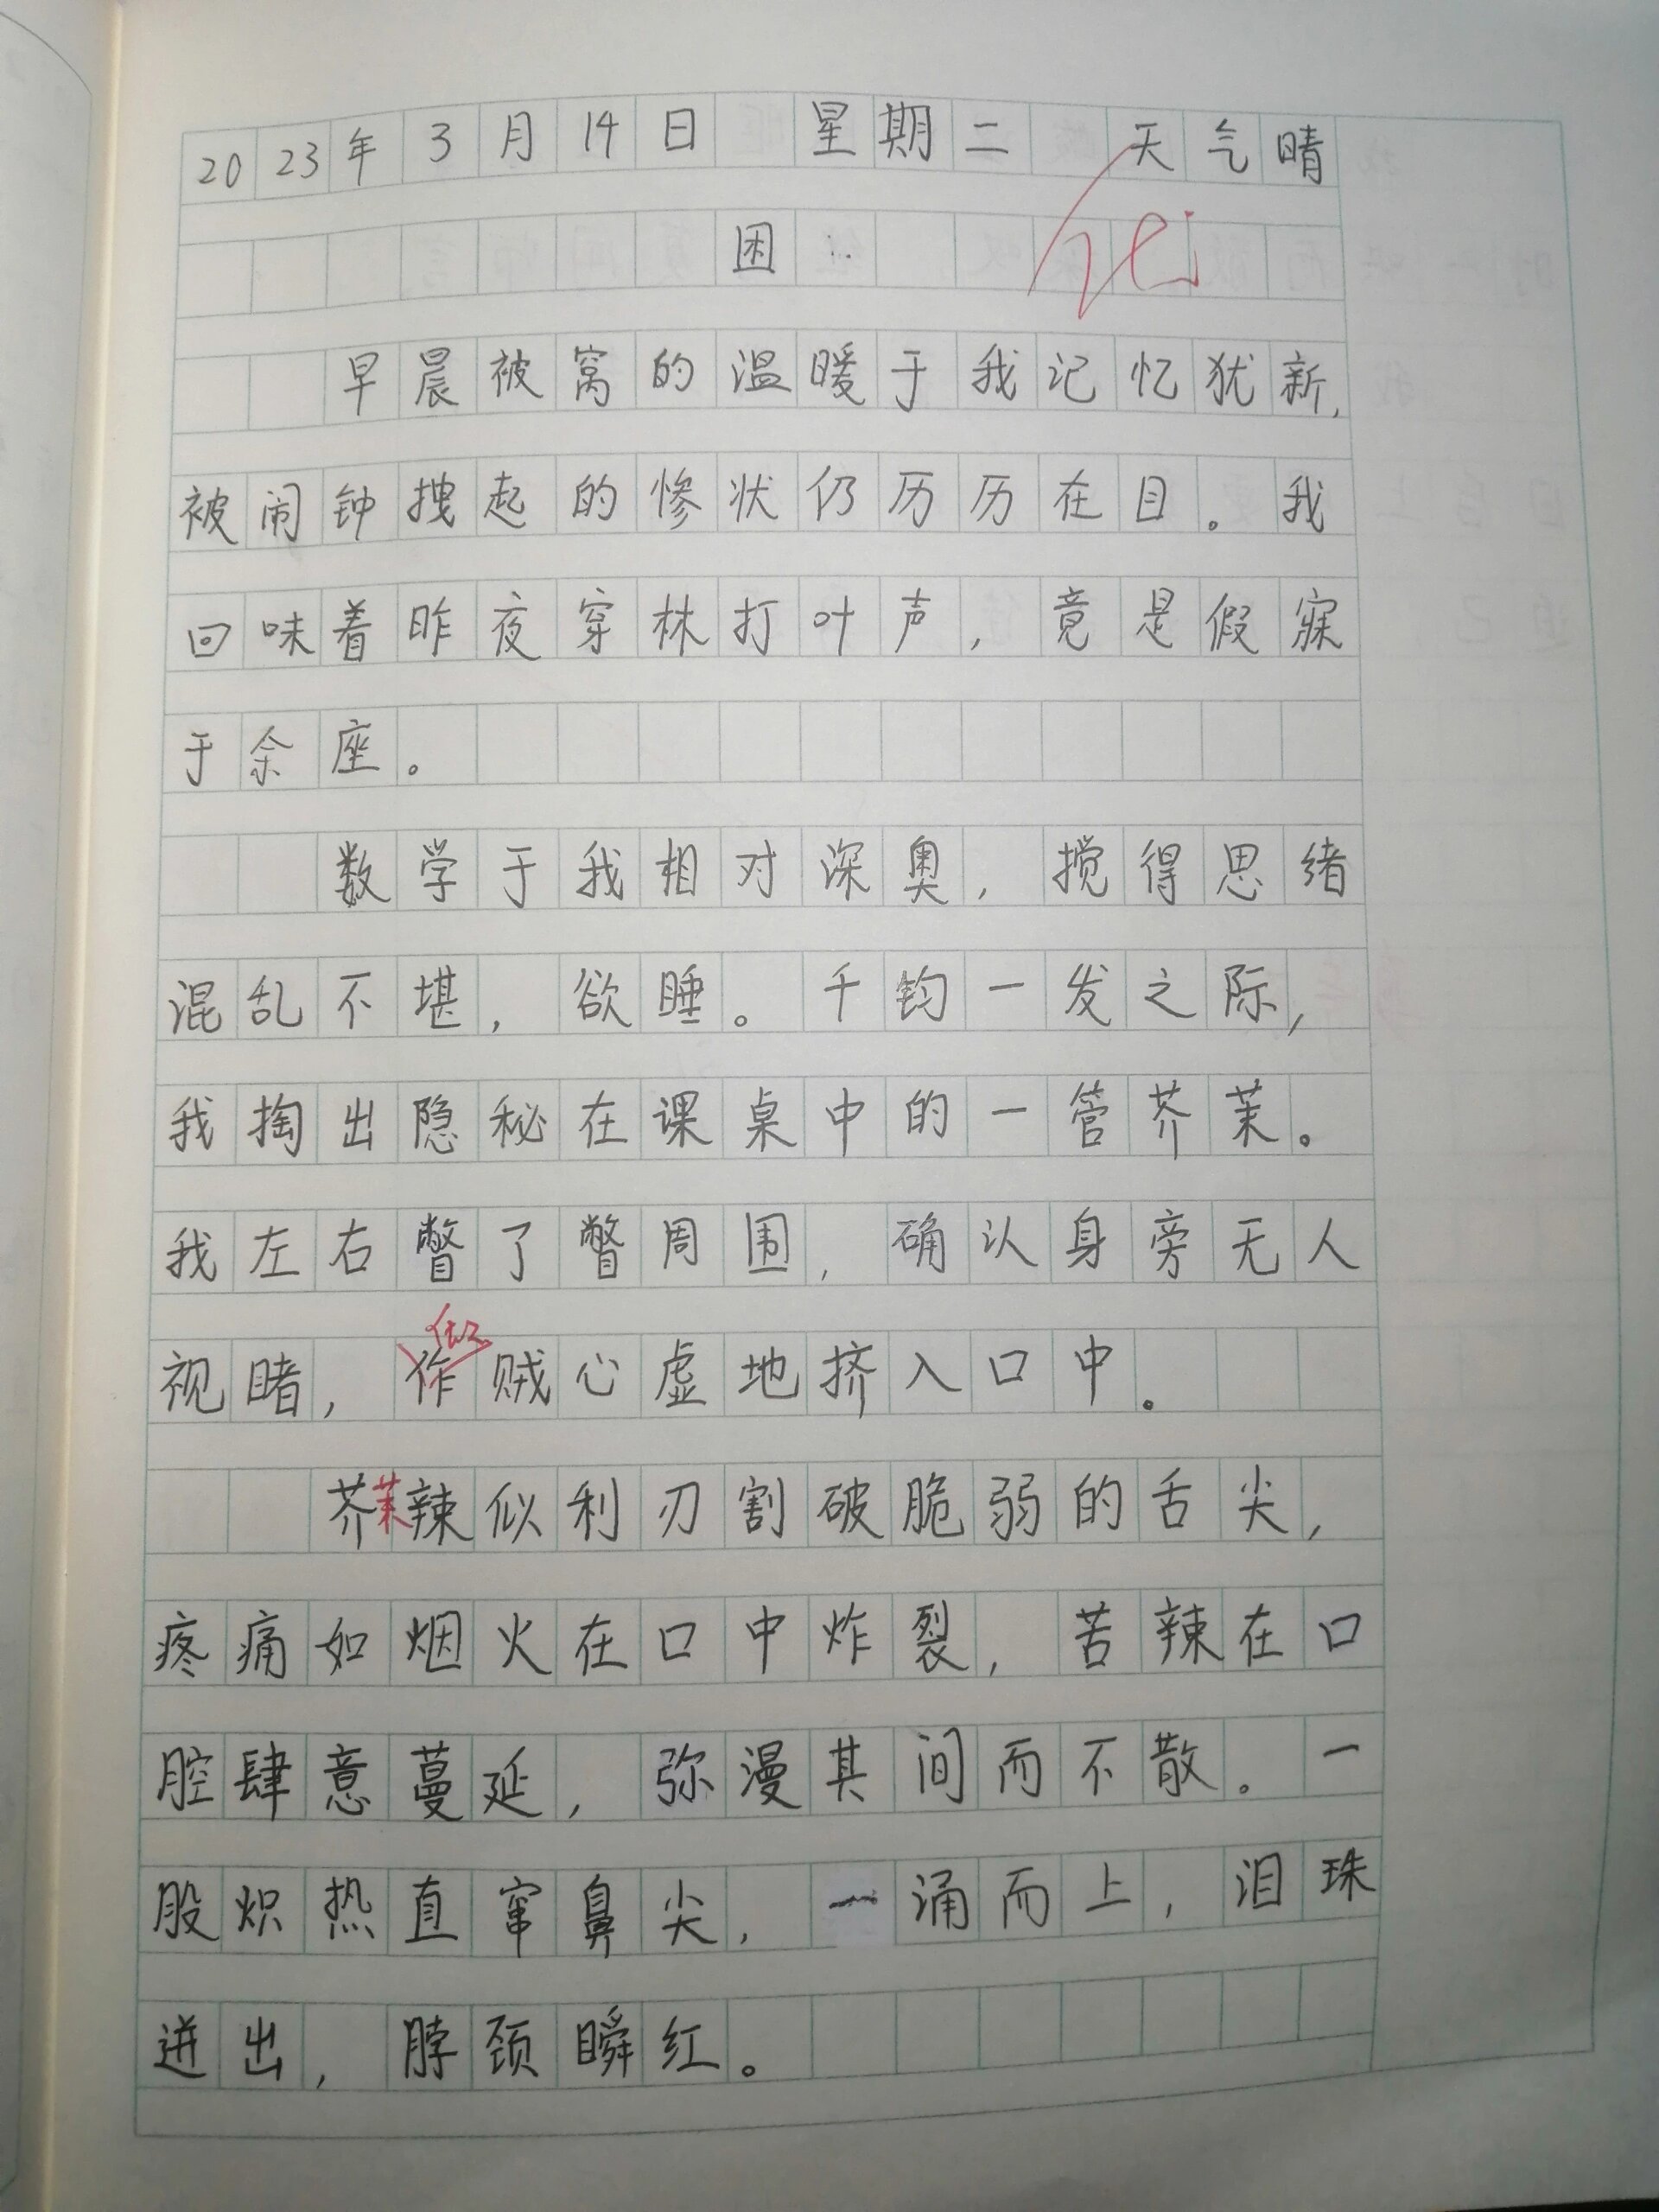 2023年3月14日 星期二 天气晴
困
早晨被窝的温暖于我记忆犹新,
被闹钟拽起的惨状仍历历在目。我
回味着昨夜穿林打叶声,竟是假寐
于余座。
数学于我相对深奥,搅得思绪
混乱不堪,欲睡。千钧一发之际,
我掏出隐秘在课桌中的一管芥茉。
我左右瞥了瞥周围,确认身旁无人
视睹,作贼心虚地挤入口中。
芥茉辣似利刃割破脆弱的舌尖,
疼痛如烟火在口中炸裂,苦辣在口
腔肆意蔓延,弥漫其间而不散。一
股炽热直窜鼻尖,一涌而上,泪珠
迸出,脖颈瞬红。